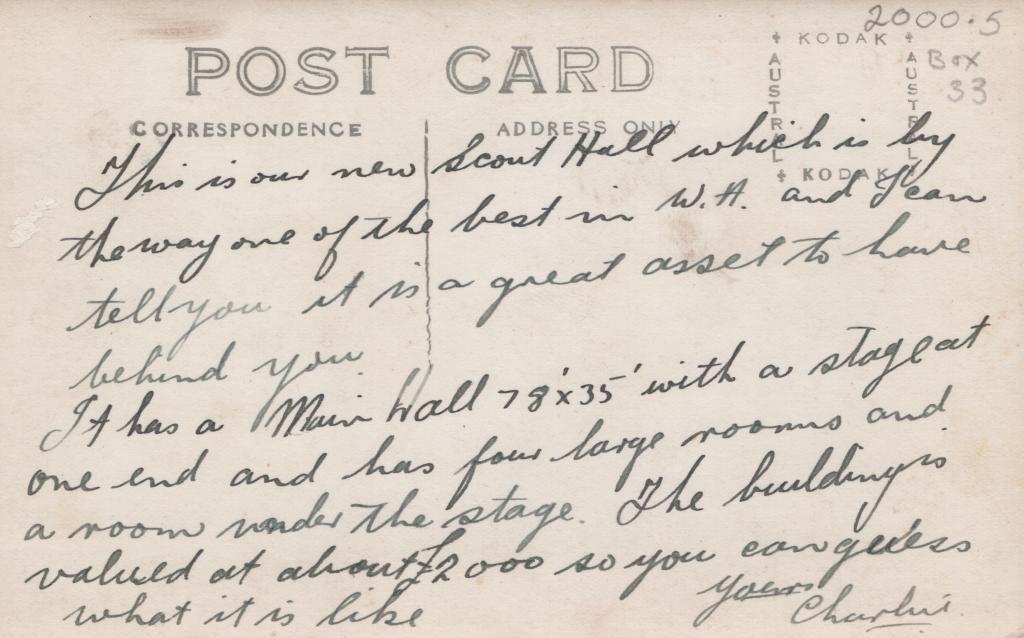 2000.5
POST CARD
KODAK
AUSTRAL
AUSTRAL
KODAK
Box
33
CORRESPONDENCE
ADDRESS ONLY
This is our new Scout Hall which is by
the way one of the best in W.A. and I can
tell you it is a great asset to have
behind you
It has a Main Hall 78'x35' with a stage at
one end and has four large rooms and
a room under the stage. The building is
valued at about £2000 so you can guess
what it is like
Yours
Charlie.